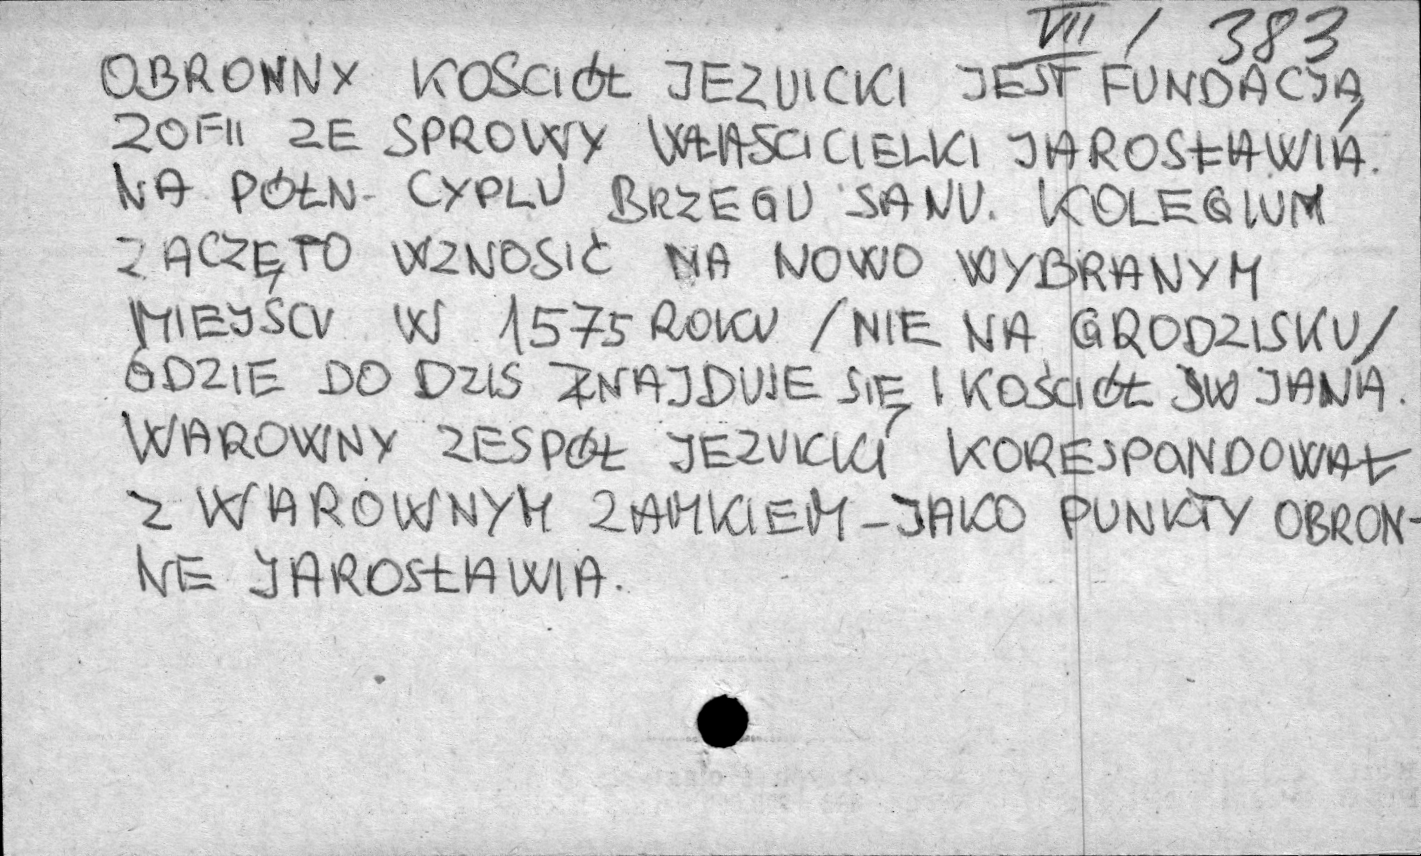 VII / 383
OBRONNY KOŚCIÓŁ JEZUICKI JEST FUNDACJĄ
ZOFII ZE SPROWY WŁAŚCICIELKI JAROSŁAWIA.
NA PÓŁN- CYPLU BRZEGU SANU. KOLEGIUM
ZACZĘTO WZNOSIĆ NA NOWO WYBRANYM
MIEJSCU W 1575 ROKU /NIE NA GRODZISKU/
GDZIE DO DZIS ZNAJDUJE SIĘ I KOŚCIÓŁ ŚW JANA.
WAROWNY ZESPÓŁ JEZUICKI KORESPONDOWAŁ
Z WAROWNYM ZAMKIEM - JAKO PUNKTY OBRON-
NE JAROSŁAWIA.